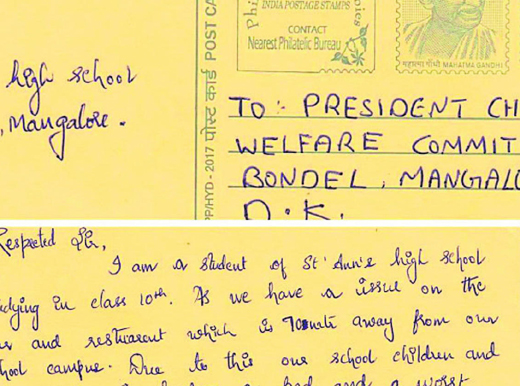 high school
, Mangalore.
PP/HYD - 2017 पोस्ट कार्ड POST CA
INDIA POSTAGE STAMPS
CONTACT
Nearest Philatelic Bureau
महात्मा गाँधी MAHATMA GANDHI
TO :- PRESIDENT CH
WELFARE COMMIT
BONDEL, MANGALO
D.K.
Respreted Sir,
I am a student of St' Ann's high school
udying in class 10th. As we have a issue on the
and restuarent which is away from our
hool campus. Due to this our school children and
bad and a worst